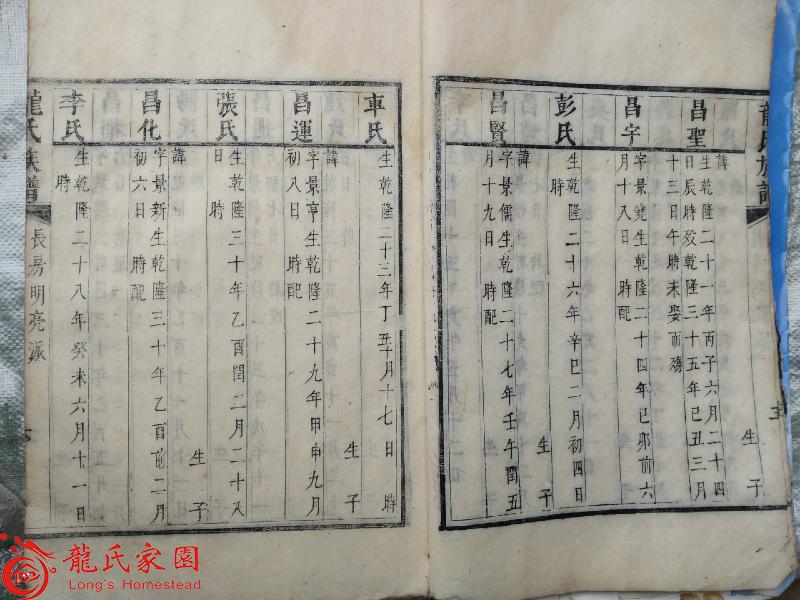 龍氏族譜
昌聖
諱
生乾隆二十一年丙子六月二十四
日辰時殁乾隆三十五年己丑三月
十三日午時未娶而殤
生子
昌字
字景堯生乾隆二十四年己卯前六
月十八日 時配
彭氏
生乾隆二十六年辛巳二月初四日
時
生子
昌賢
諱
字景儒生乾隆二十七年壬午閏五
月十九日 時配
車氏
生乾隆二十三年丁丑十月十七日時
生子
昌運
諱
字景亨生乾隆二十九年甲申九月
初八日 時配
張氏
生乾隆三十年乙酉閏二月二十八
日 時
生子
昌化
諱
字景新生乾隆三十年乙酉前二月
初六日 時配
李氏
生乾隆二十八年癸未六月十一日
時
龍氏族譜
長房明亮派
龍氏家園
Long's Homestead